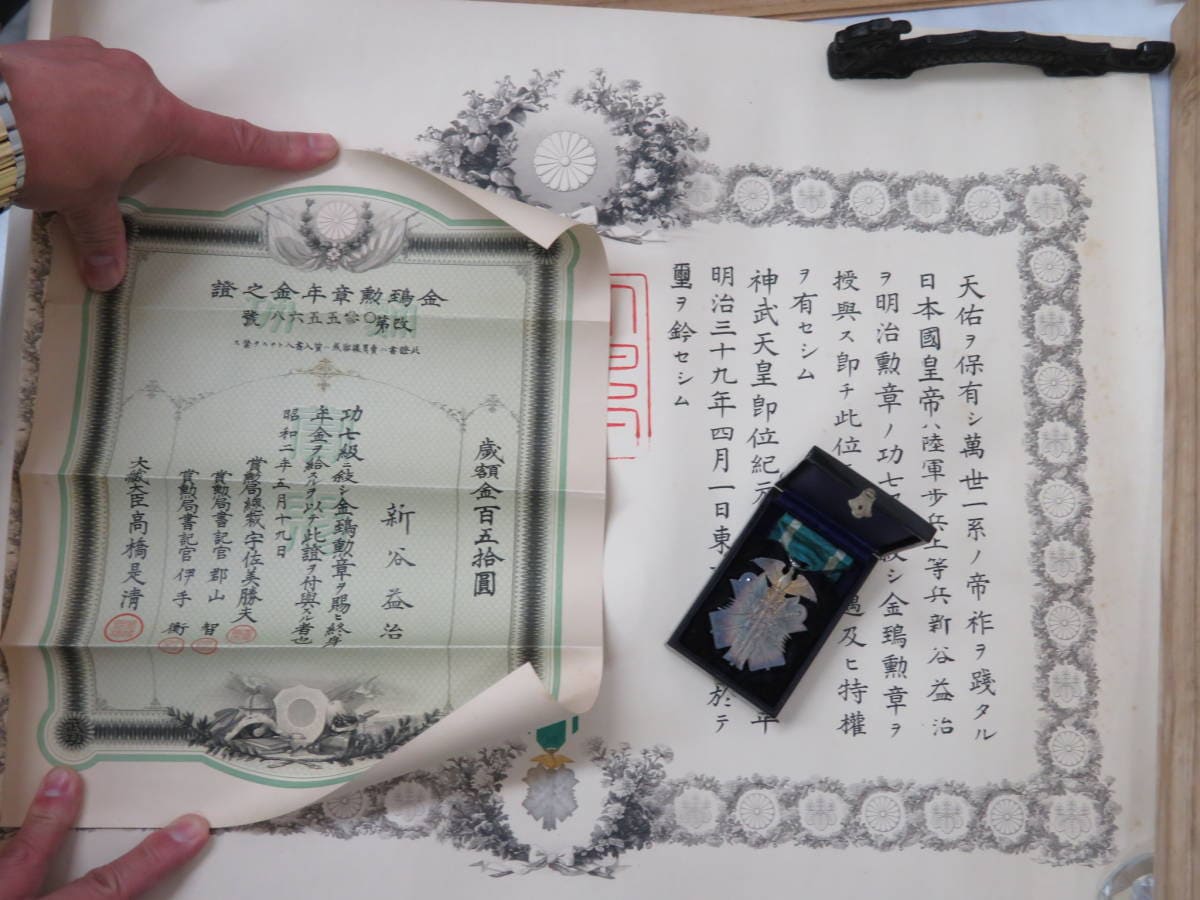 天佑ヲ保有シ萬世一系ノ帝祚ヲ踐タル
日本國皇帝ハ陸軍歩兵上等兵新谷益治
ヲ明治勲章ノ功七級ニ敍シ金鵄勲章ヲ
授與ス即チ此位
遇及ヒ特權
ヲ有セシム
神武天皇即位紀元
年
明治三十九年四月一日東
於テ
璽ヲ鈐セシム
金鵄勲章年金之證
改第〇五五六八號
歳額金百五拾圓
新谷益治
功七級ニ敍シ金鵄勲章ヲ賜ヒ終身
年金ヲ給スルヲ以テ此證ヲ付與スル者也
昭和二年五月十九日
賞勲局總裁宇佐美勝夫
賞勲局書記官郡山智
賞勲局書記官伊手衡
大藏大臣高橋是清